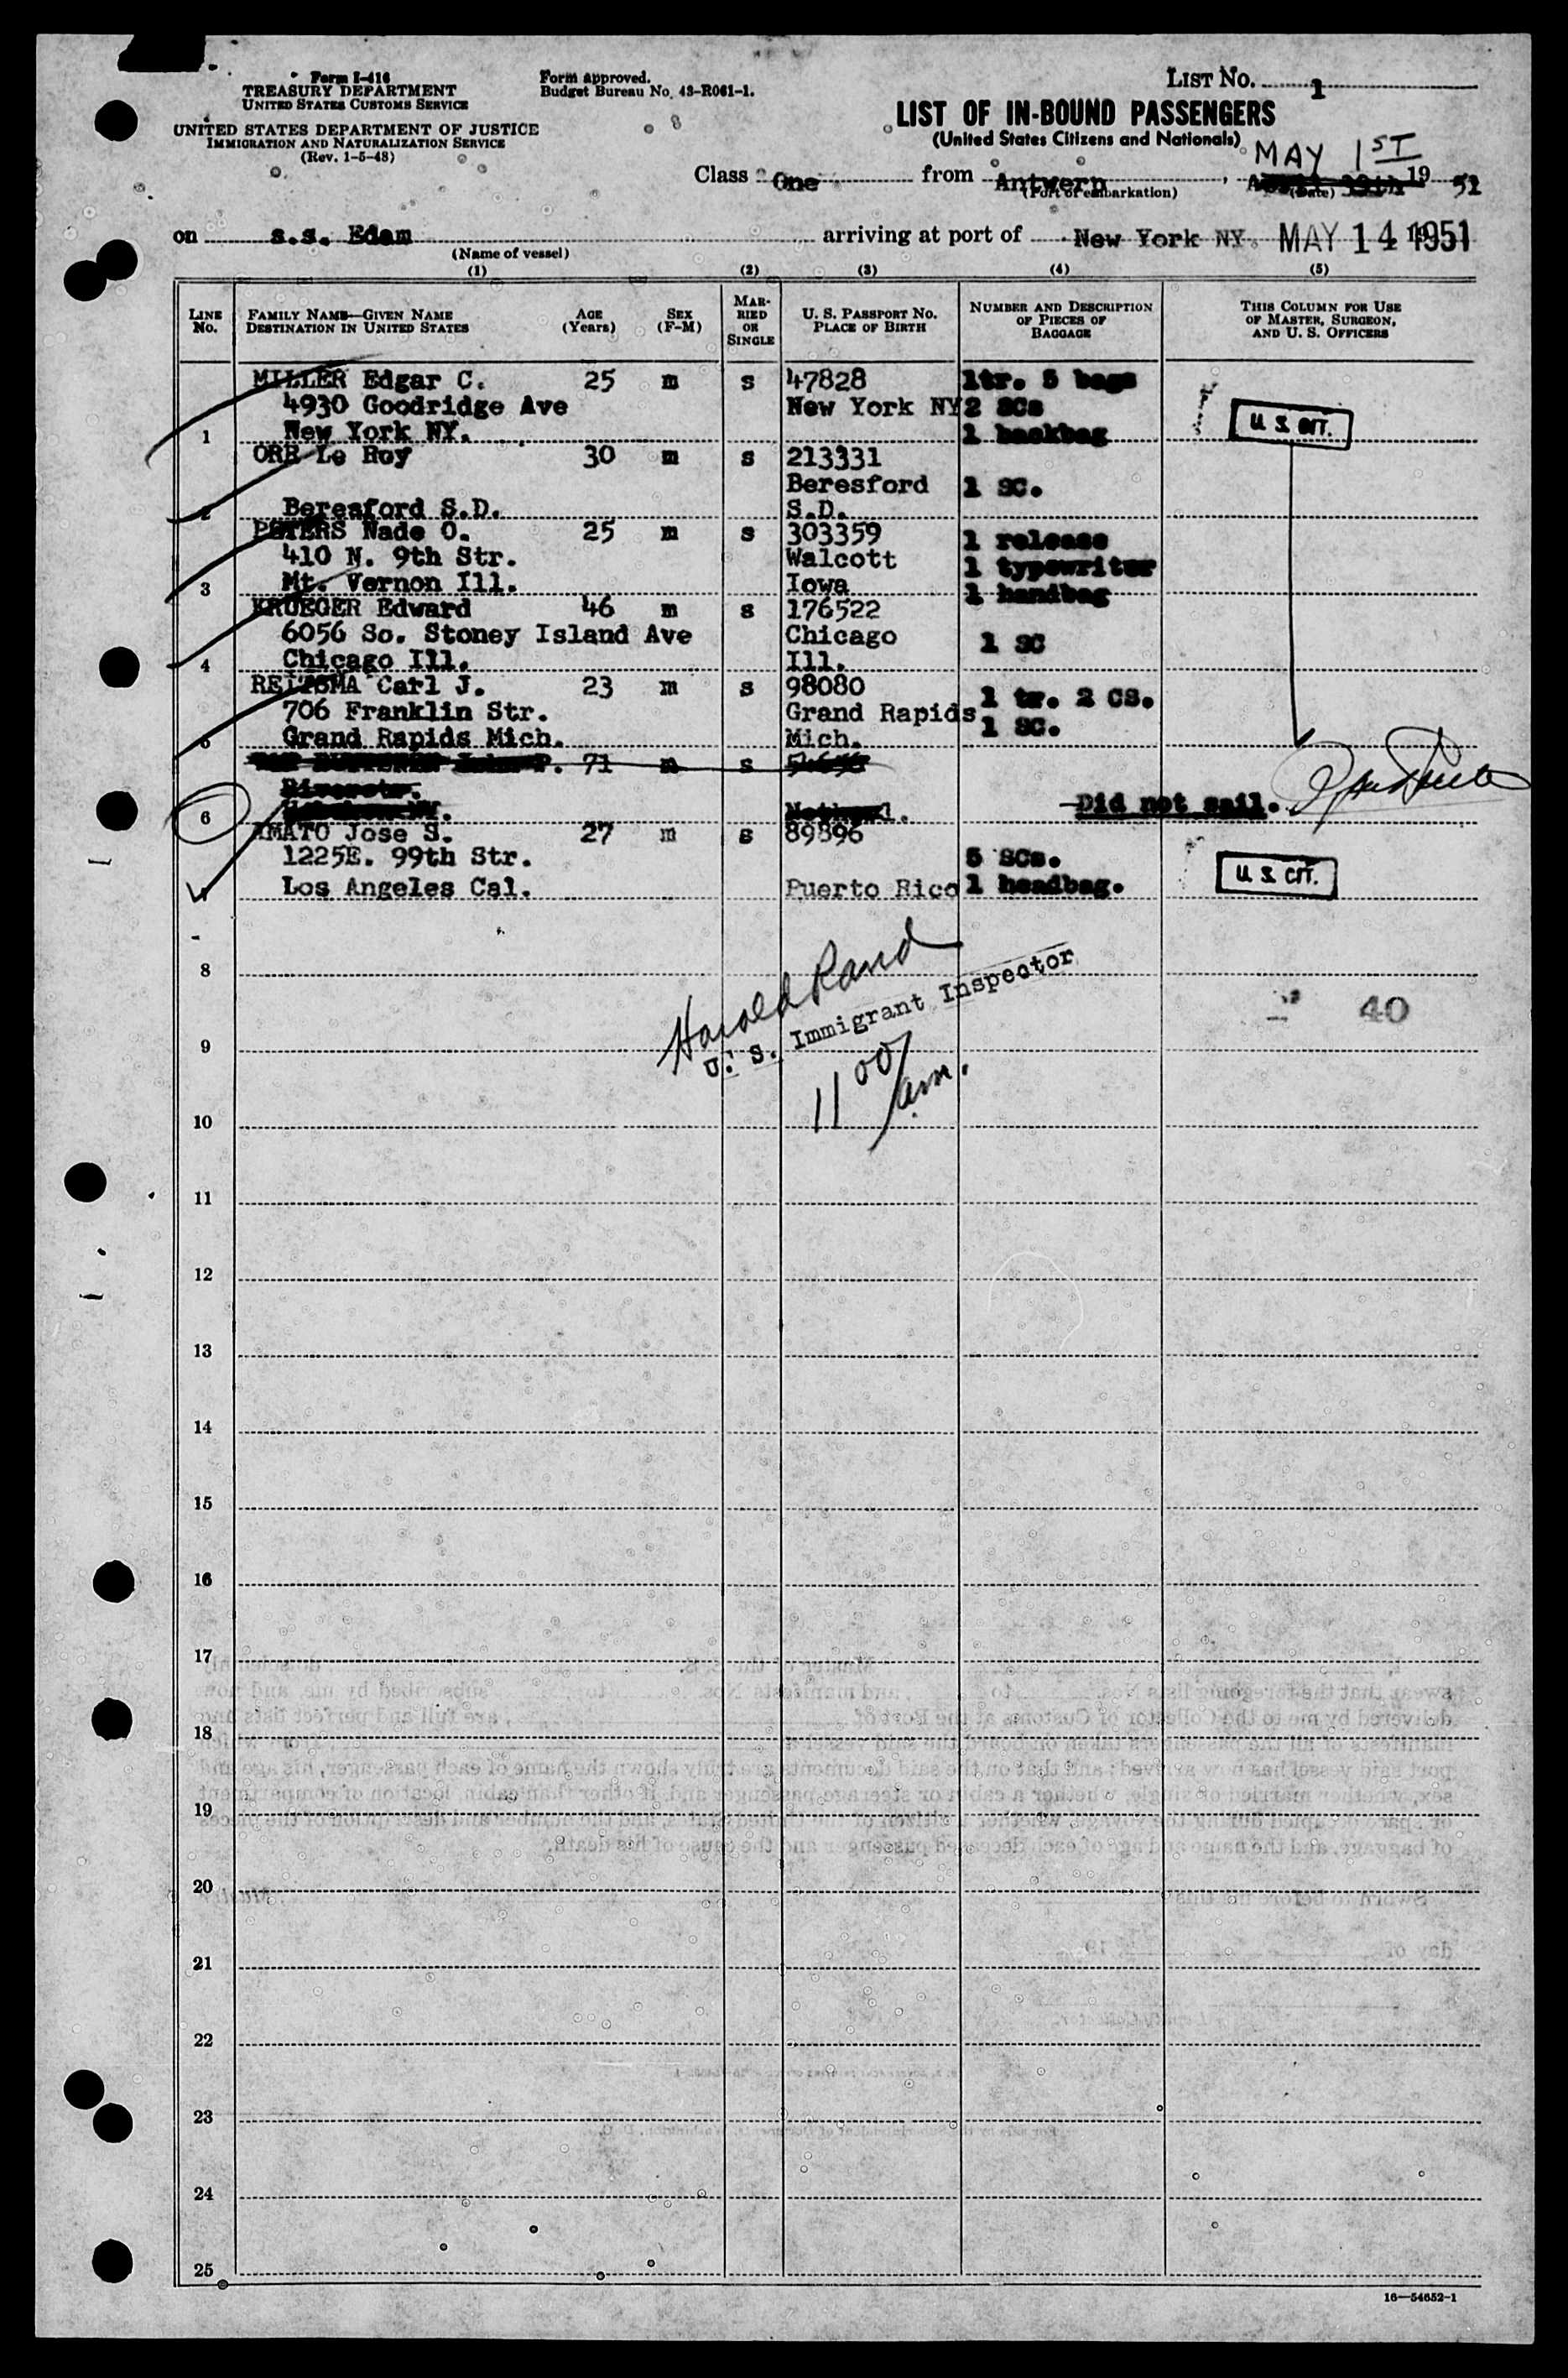 Form I-416
TREASURY DEPARTMENT
UNITED STATES CUSTOMS SERVICE
UNITED STATES DEPARTMENT OF JUSTICE
IMMIGRATION AND NATURALIZATION SERVICE
(Rev. 1-5-48)
Form approved.
Budget Bureau No. 43-R061-1.
LIST NO. 1
LIST OF IN-BOUND PASSENGERS
(United States Citizens and Nationals)
MAY 1ST
Class One from Antwerp, 19 51
(Port of embarkation) (Date)
on s.s. Edam arriving at port of New York NY. MAY 14 1951
(Name of vessel)
(1) (2) (3) (4) (5)
LINE NO. FAMILY NAME—GIVEN NAME DESTINATION IN UNITED STATES AGE (Years) SEX (F-M) MARRIED OR SINGLE U. S. PASSPORT NO. PLACE OF BIRTH NUMBER AND DESCRIPTION OF PIECES OF BAGGAGE THIS COLUMN FOR USE OF MASTER, SURGEON, AND U. S. OFFICERS
MILLER Edgar C. 25 m s 47828 1tr. 5 bags
4930 Goodridge Ave New York NY 2 SCs U. S. CIT.
1 New York NY. 1 backbag
ORR Le Roy 30 m s 213331
Beresford 1 SC.
2 Beresford S.D. S.D.
PETERS Wade O. 25 m s 303359 1 release
410 N. 9th Str. Walcott 1 typewriter
3 Mt. Vernon Ill. Iowa 1 handbag
KRUEGER Edward 46 m s 176522
6056 So. Stoney Island Ave Chicago 1 SC
4 Chicago Ill. Ill.
REITSMA Carl J. 23 m s 98080 1 tr. 2 cs.
706 Franklin Str. Grand Rapids 1 SC.
5 Grand Rapids Mich. Mich.
71 m s
6 Did not sail.
AMATO Jose S. 27 m s 89896
1225E. 99th Str. 5 SCs. U. S. CIT.
7 Los Angeles Cal. Puerto Rico 1 handbag.
8
Harold Rand
U. S. Immigrant Inspector
40
9
11 00/am.
10
11
12
13
14
15
16
17
18
19
20
21
22
23
24
25
16—54652-1